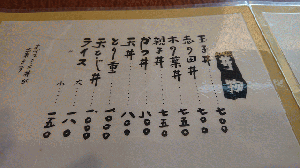 丼物
玉子丼 七〇〇
志の田丼 七五〇
木の葉丼 七五〇
親子丼 七五〇
カツ丼 八〇〇
天丼 八〇〇
とり重 一、〇〇〇
天とじ丼 一、〇〇〇
ライス 大 一八〇
小 一五〇